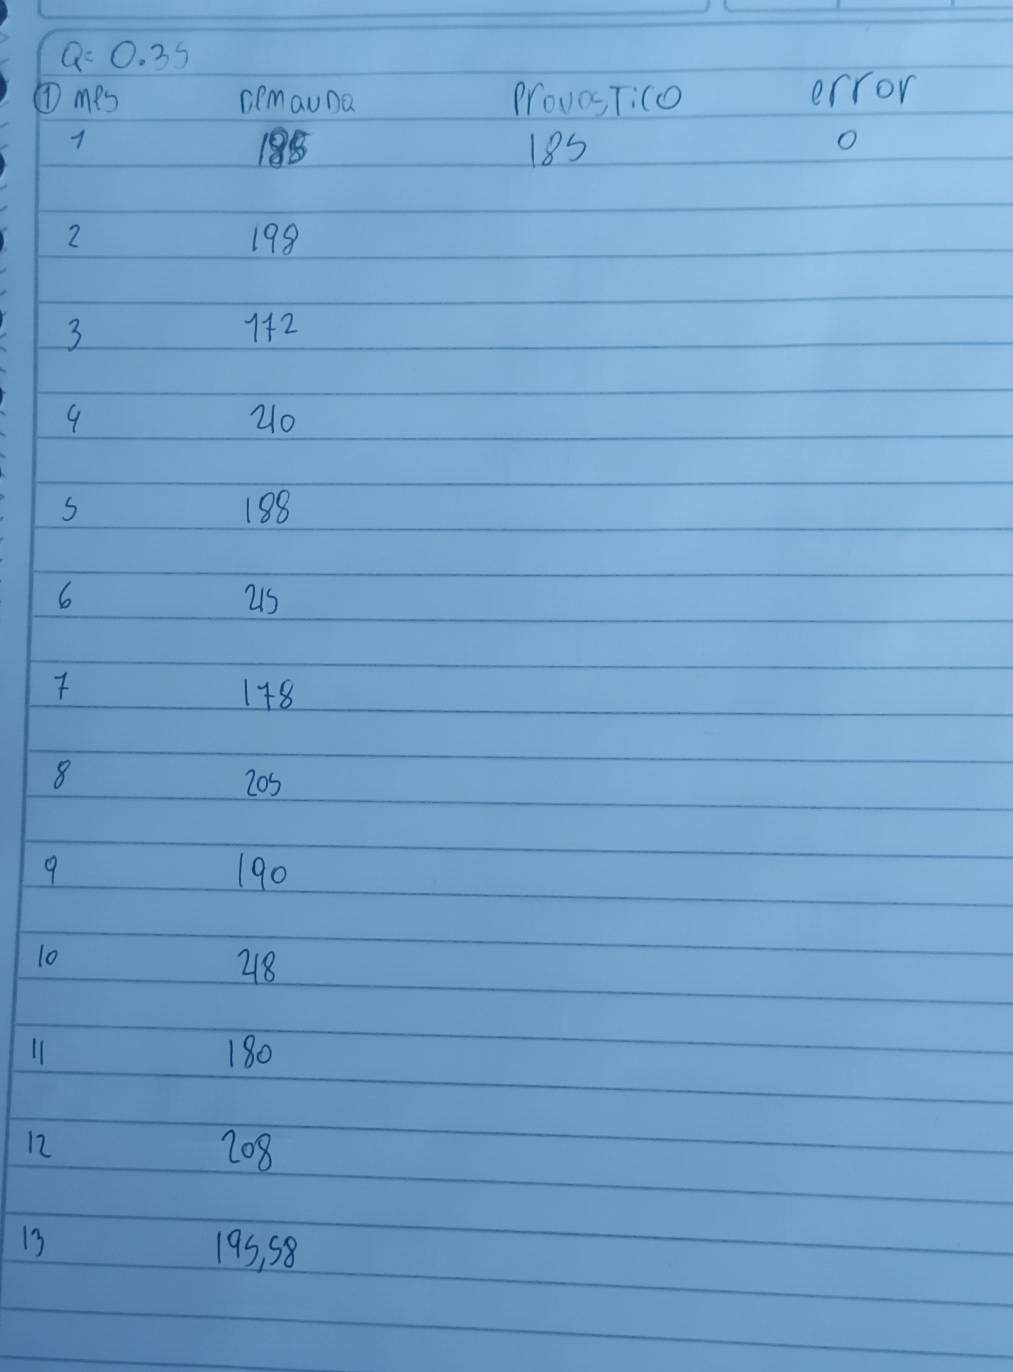 Q= 0.35
① mes demanda Pronostico error
1 185 185 0
2 198
3 172
4 210
5 188
6 215
7 178
8 205
9 190
10 218
11 180
12 208
13 195,58